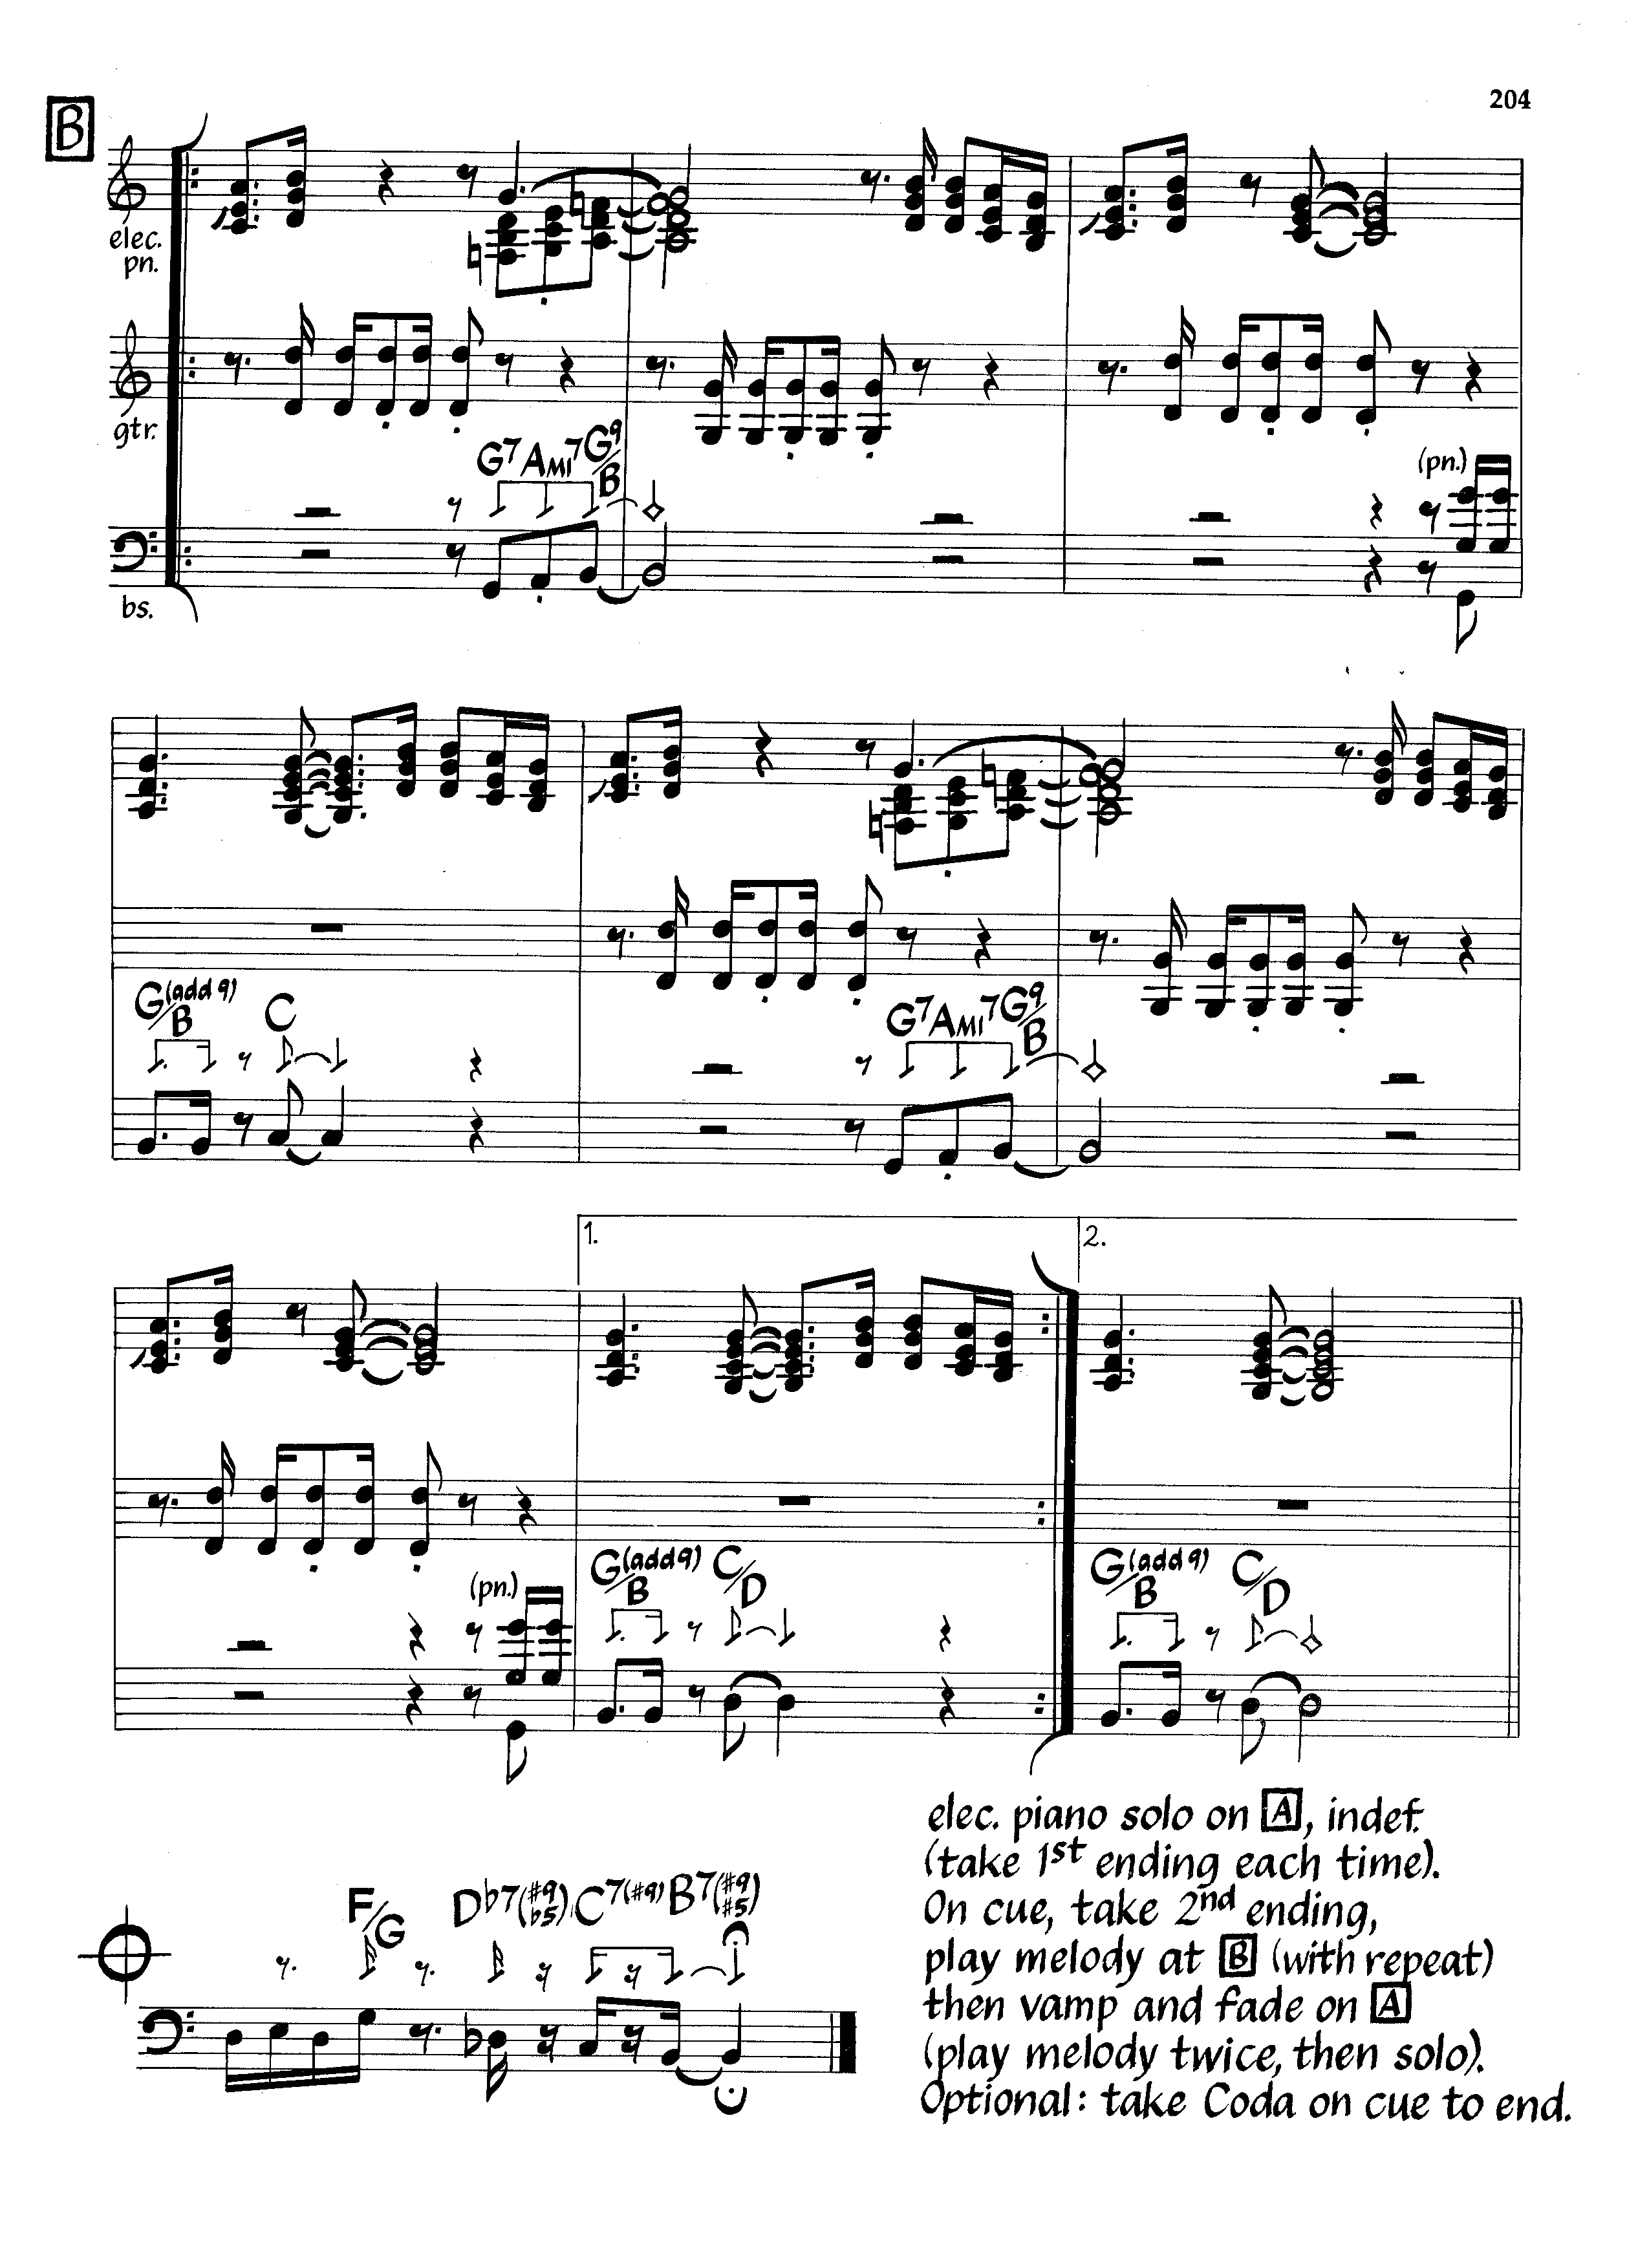 204
B
elec.
pn.
gtr.
G7 AMI7 G9/B
(pn.)
bs.
G(add9)/B C
G7 AMI7 G9/B
1. 2.
(pn.)
G(add9)/B C/D
G(add9)/B C/D
elec. piano solo on A, indef.
(take 1st ending each time).
On cue, take 2nd ending,
play melody at B (with repeat)
then vamp and fade on A
(play melody twice, then solo).
Optional: take Coda on cue to end.
F/G Db7(#9b5) C7(#9) B7(#9#5)